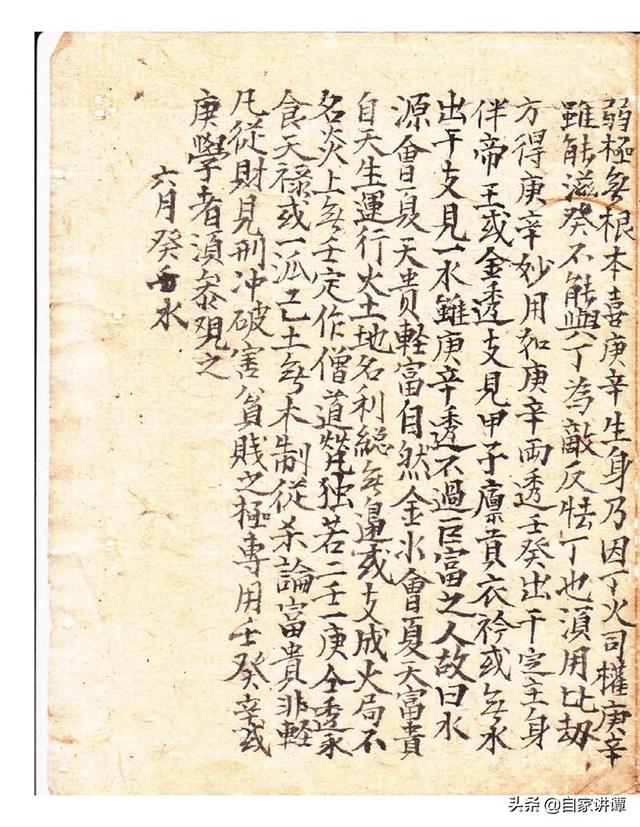 弱極無根本喜庚辛生身乃因丁火司權庚辛
雖能滋癸不能與丁為敵反怯丁也須用比劫
方得庚辛妙用如庚辛両透壬癸出干定主身
伴帝王或金透支見甲子廪貢衣衿或無水
出干支見一水雖庚辛透不過一富之人故曰水
源會夏天貴軽富自然金水會夏天富貴
自天生運行火土地名利總無邊或支成火局不
名炎上無壬定作僧道茕独若二壬一庚仝透永
食天禄或一派己土無木制從杀論富貴非軽
凡從財見刑冲破害貧賤之極專用壬癸辛或
庚學者須叅观之
六月癸水
头条 @自家讲谭